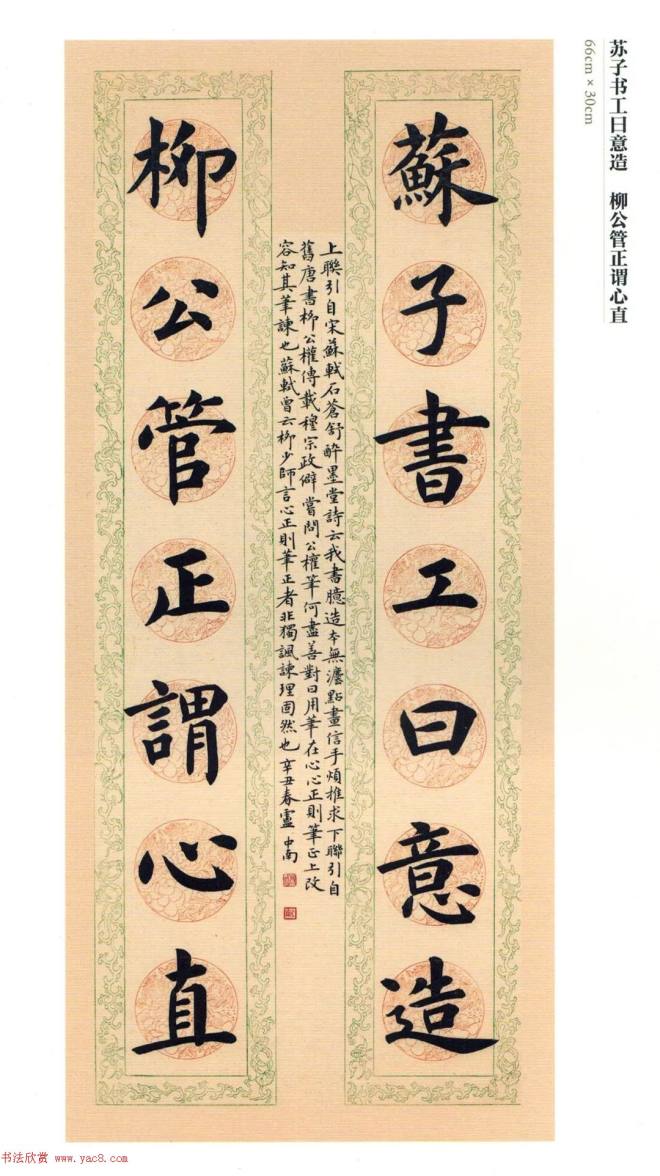 苏子书工曰意造 柳公管正谓心直
66cm×30cm
蘇子書工曰意造
上聯引自宋蘇軾石蒼舒醉墨堂詩云我書臆造本無灋點畫信手煩推求下聯引自
舊唐書柳公權傳載穆宗政僻嘗問公權筆何盡善對曰用筆在心心正則筆正上改
容知其筆諫也蘇軾曾云柳少師言心正則筆正者非獨諷諫理固然也辛丑春盧中南
柳公管正謂心直
书法欣赏 www.yac8.com